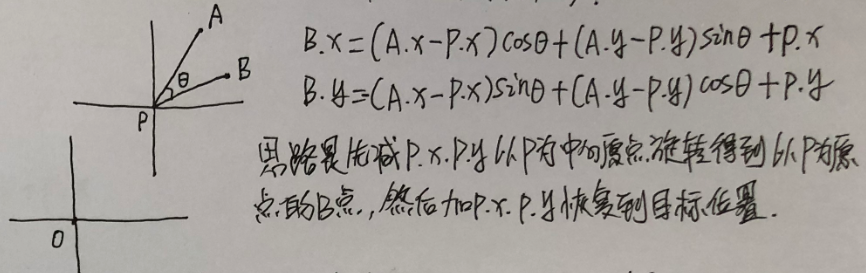 A
B.x=(A.x-P.x)cosθ+(A.y-P.y)sinθ+P.x
θ
B
B.y=(A.x-P.x)sinθ+(A.y-P.y)cosθ+P.y
P
思路是先减P.x.P.y以P为中心原点.旋转得到以P为原
点的B点,然后加P.x.P.y恢复到目标位置.
O